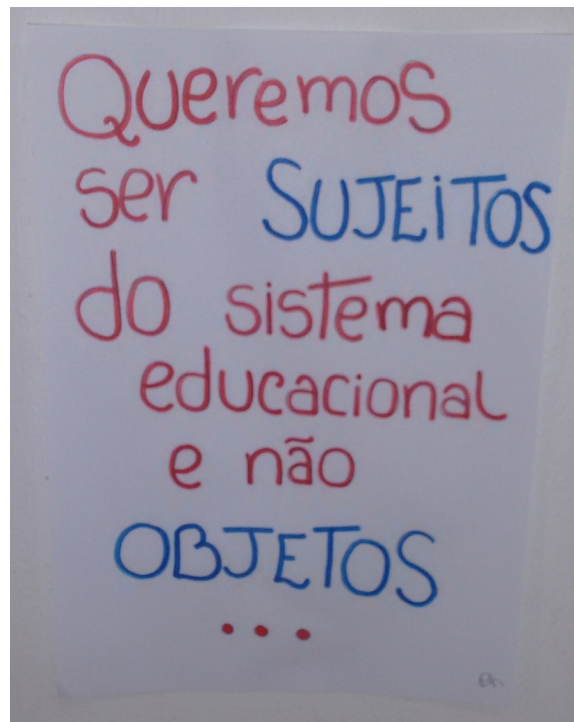 Queremos
ser SUJEiTOS
do sistema
educacional
e não
OBJETOS
...